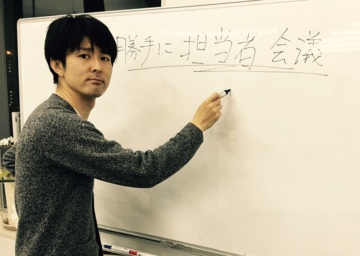 勝手に担当者会議